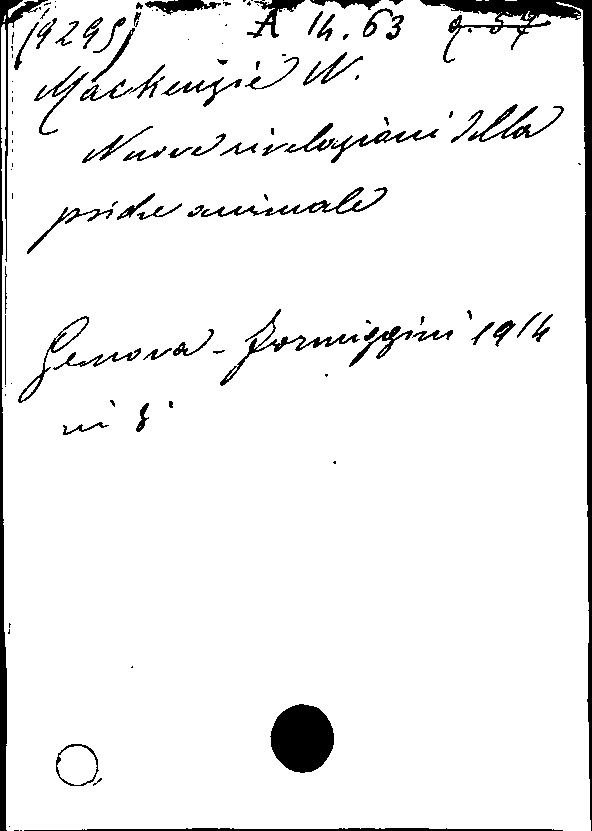 (9295) A 14.63 q.57
Mackenzie W.
Nuove rivelazioni della
psiche animale
Genova - Formiggini 1914
in 8°